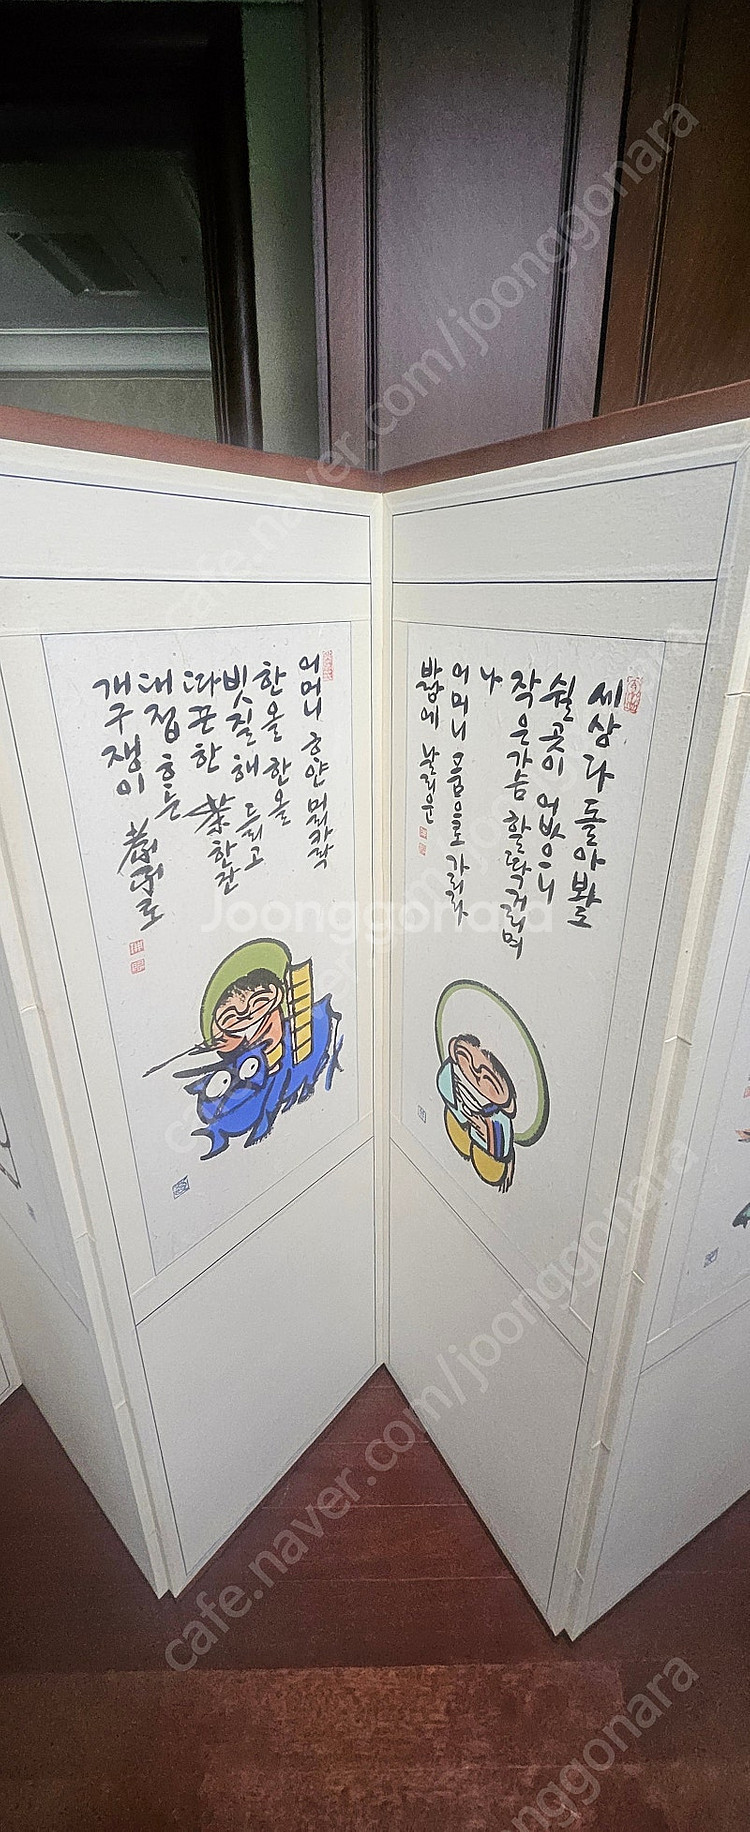 세상 다 돌아봐도
쉴 곳이 어없으니
작은 가슴 할딱거리며
나
어머니 품으로 가리라
바람에 날리운
어머니 하얀 머리카락
한올 한올
빗질해 드리고
따끈한 茶 한잔
대접하는
개구쟁이
Joonggonara
cafe.naver.com/joonggonara
cafe.naver.com/joonggonara